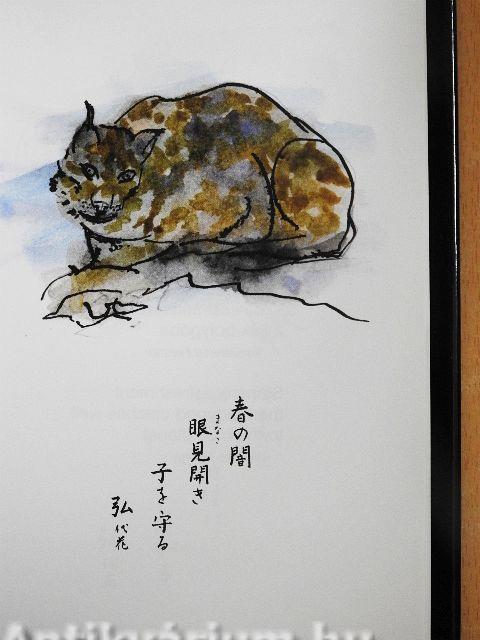 春の闇
眼見開き
まなこ
子を守る
弘
代花
Antikvárium.hu